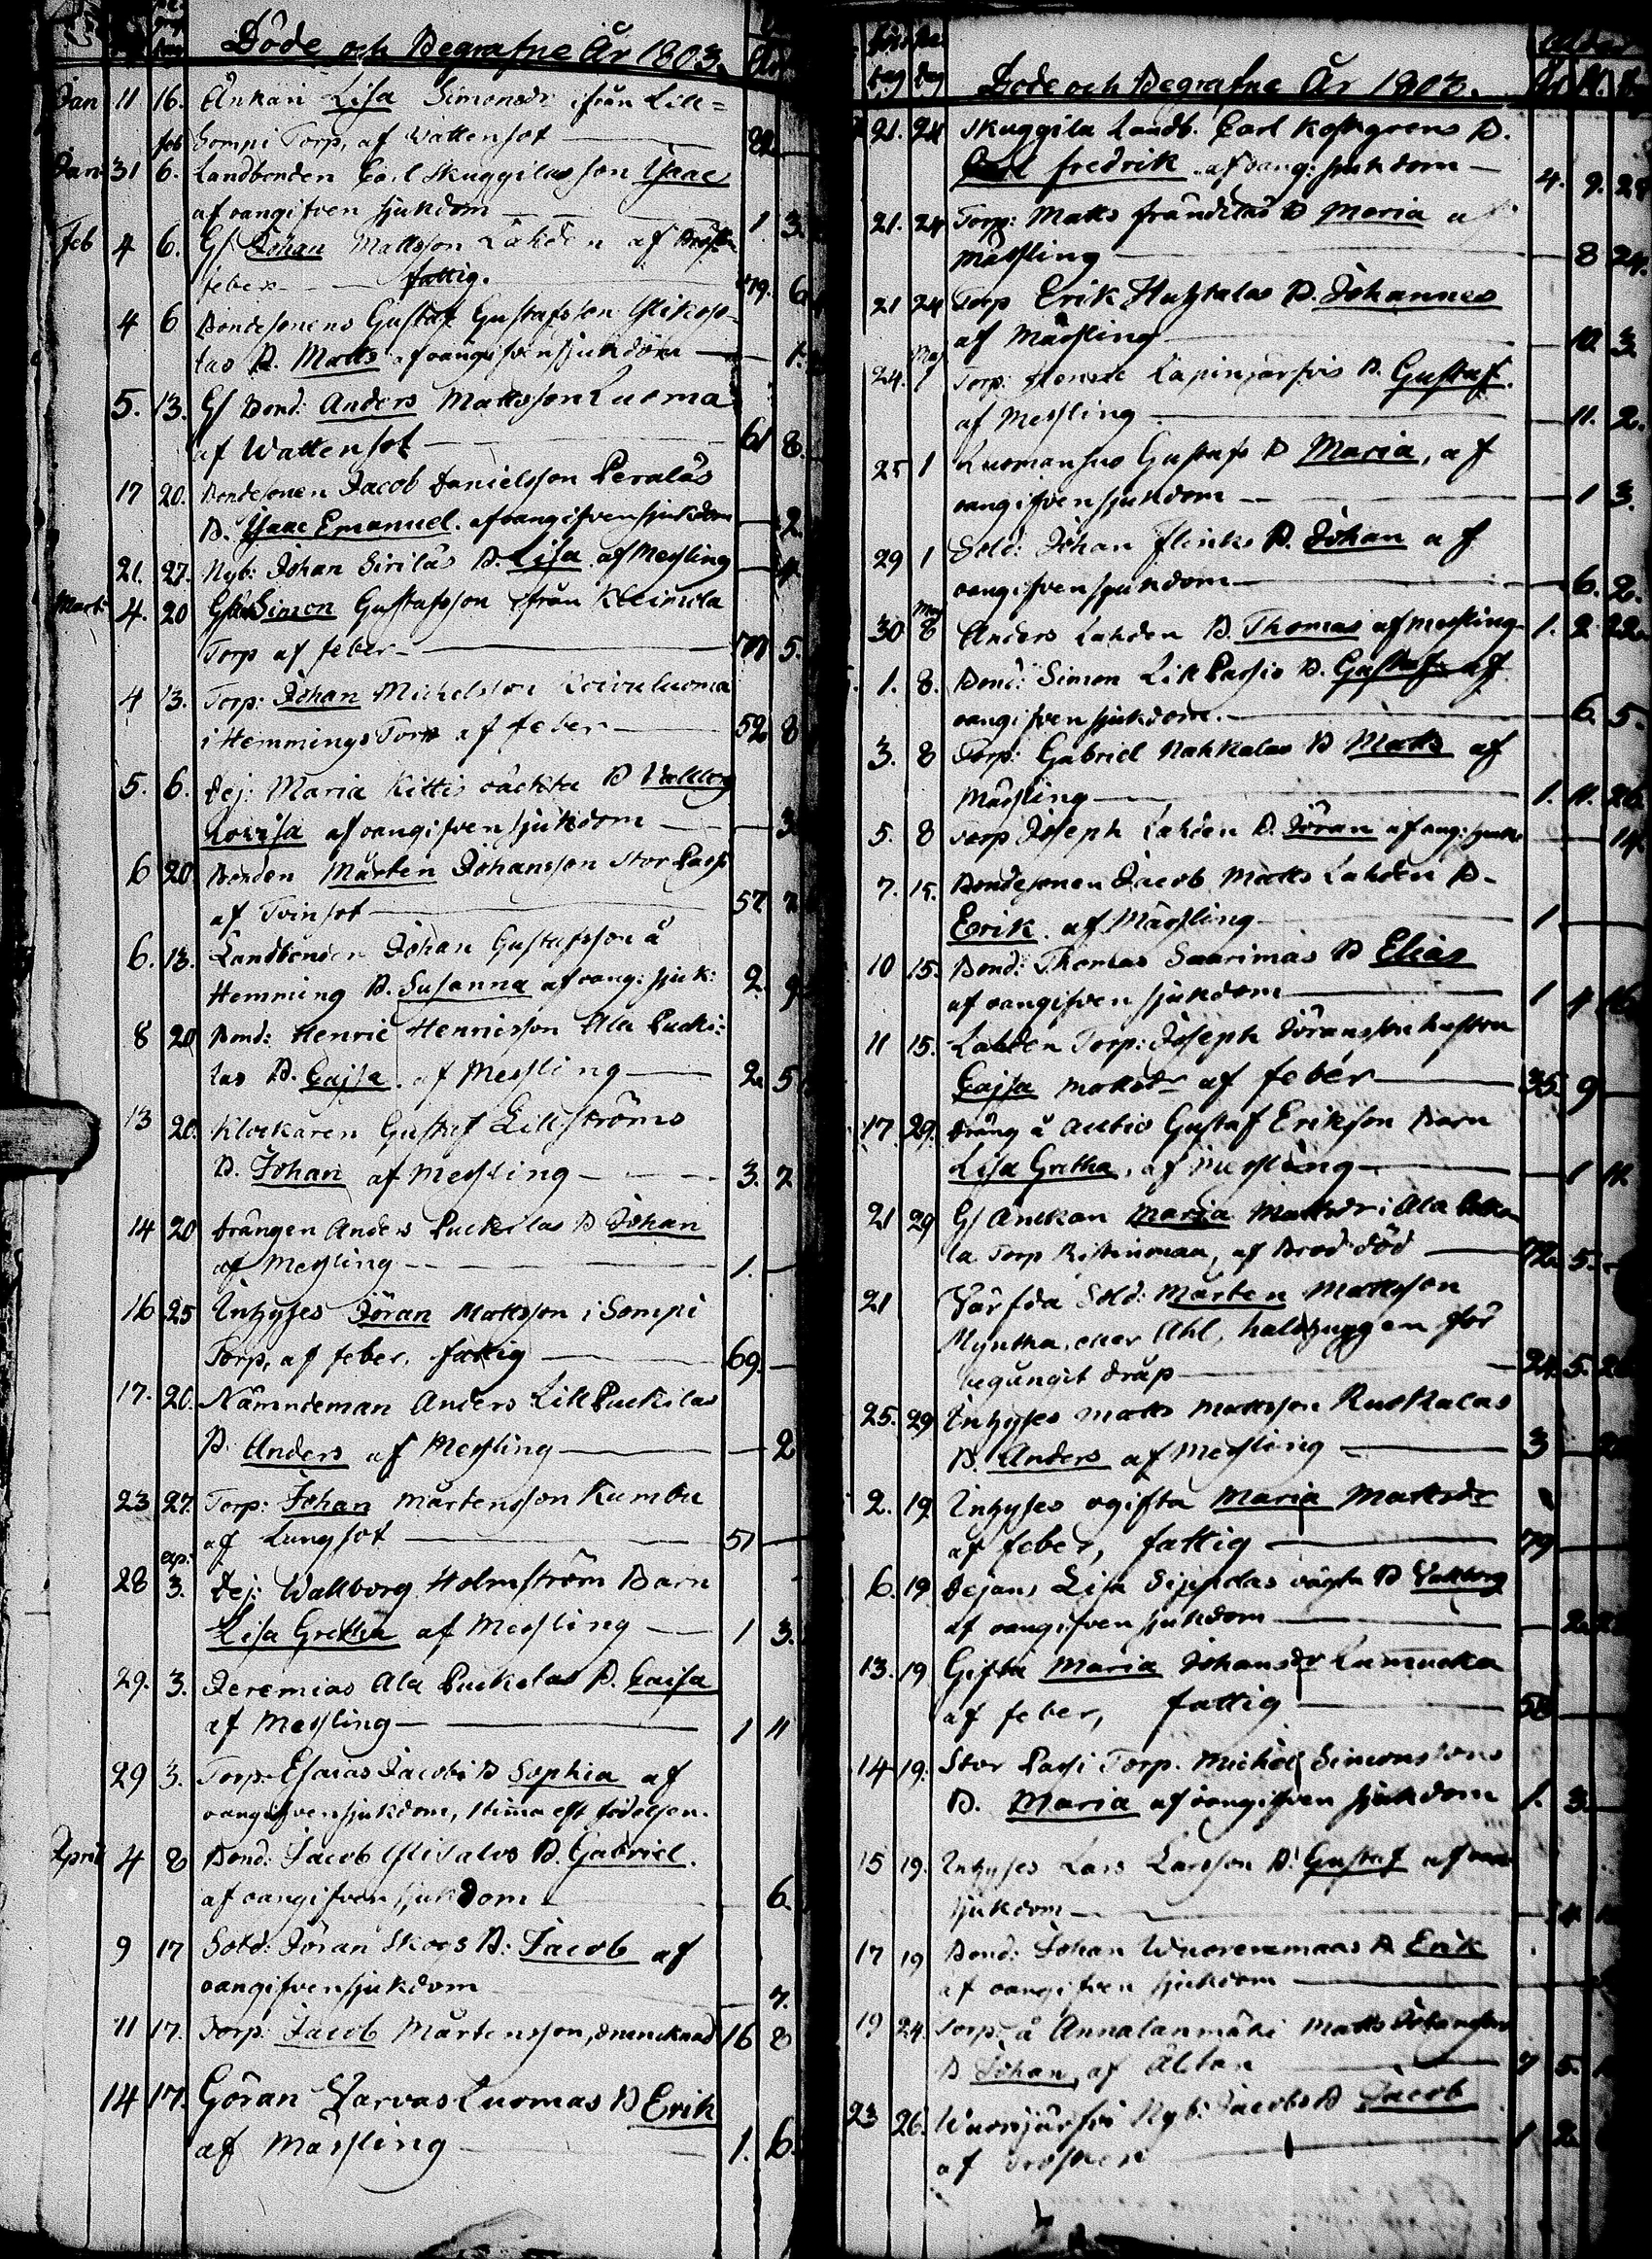 Döde och Begrafne År 1803.
Jan 11 16. Änkan Lisa Simonsdr ifrån Lill=
feb Sompi Torp, af Wattensot
Jan 31 6. Landbonden Carl Skuggilas son Isaac
af oangifven sjukdom 1. 3.
Feb 4 6. Gl. Johan Mattsson Lahden af Bröst
feber fattig. 79. 6
4 6 Bondesonens Gustaf Gustafsson
las B. Matts af oangifven sjukdom 1.
5. 13. Gl Bond: Anders Mattsson Luoma
af Wattensot 61 8.
17 20. Bondesonen Jacob Danielsson Peralas
B. Isaac Emanuel. af oangifven sjukdom 2
21. 27. Nyb: Johan Sirilas B. Lisa af Messling 4.
Mart: 4. 20 Simon Gustafsson ifrån Kleimola
Torp af feber 5.
4 13. Torp: Johan Michelsson Koivuluoma
i Hemmings Torp af feber 52 8
5. 6. Pej: Maria Kittis oäckta B Wallborg
Lovisa af oangifven sjukdom 3
6 20 Bonden Mårten Johansson Stor Passi
af Tvinsot 57
6. 13. Landbonden Johan Gustafsson å
Hemming B. Susanna af oang: sjuk: 2. 9
8 20 Bond: Henric Henricsson Ala Lucki=
las B. Cajsa. af Messling 2. 5
13 20. Klockaren Gustaf Lillströms
B. Johan af Messling 3. 7
14 20 Drängen Anders Puckilas B Johan
af Messling 1.
16 25 Inhyses Jöran Mattsson i Sompi
Torp, af feber, fattig 69.
17. 20. Nämndeman Anders Lill Puckilas
B. Anders af Messling 2
23 27. Torp: Johan Mårtensson Kumbu
af Lungsot 51
ap:
28 3. Pej: Wallborg Holmström Barn
Lisa Gretha af Messling 1 3.
29. 3. Jeremias Ala Puckelas B. Caisa
af Messling 1 11
29 3. Torp: Esaias Jacobs B Sophia af
oangifven sjukdom, 1 tima eft födelsen.
April 4 8 Bond: Jacob B. Gabriel.
af oangifven sjukdom 6.
9 17 Sold: Jöran Skogs B: Jacob af
oangifven sjukdom 7.
11 17. Torp: Jacob Mårtensson, druncknad 16 8
14 17. Göran Varvas Luomas B Erik
af Massling 1. 6.
Döde och Begrafne År 1803.
21. 24 Skuggila Landb. Carl Koskgrens B.
Carl fredrik af oang: sjukdom 4. 9.
21. 24 Torp: Matts Frändilas B Maria af
Mässling 8 24.
21 24 Torp Erik Huhtalas B. Johannes
af Mässling 10. 3
Maj
24. 1 Torp: Henric Lapinjärfvis B. Gustaf.
af Messling 11. 2.
25 1 Luomanens Gustafs B Maria, af
oangifven sjukdom 1 3.
29 1 Sold: Johan Flinks B. Johan af
oangifven sjukdom 6. 2.
Maj
30 8 Anders Lahden B. Thomas af Messling 1. 2 22.
1. 8. Bond: Simon Lill Passis B. Gustaf af
oangifven sjukdom. 6. 5.
3. 8 Torp: Gabriel Nahkalas B Matts af
Mässling 1. 11. 26
5. 8 Torp Joseph Lahden B. Jöran af oang: sjukd 14.
7. 15. Bondesonen Jacob Matts Lahden B.
Erik. af Mässling 1
10 15. Bond: Thomas Saarimas B Elias
af oangifven sjukdom 1 4 16
11 15. Lahden Torp: Joseph Jöransson hustru
Cajsa Mattsdr af feber 35. 9
17 29. Dräng å Autio Gustaf Erikson Barn
Lisa Gretha, af Messling 1 11
21 29 Gl Anckan Maria Mattsdr i Ala
la Torp Ristinmaa, af Bröd död 72. 5.
21 Varfda Sold: Mårten Mattson
Myntha, eller Ahl, halshuggen för
begångit dråp 24. 5. 26
25. 29 Inhyses Matts Mattsson Ruskalas
B. Anders af Messling 3
2. 19 Inhyses ogifta Maria Mattsdr
af feber, fattig 79
6. 19 Pejans Lisa Sippolas oägta B Wallborg
af oangifven sjukdom 2.
13. 19 Gifta Maria Johansdr Lamucka
af feber, fattig 58
14 19. Stor Passi Torp. Michel Simonssons
B. Maria af oangifven sjukdom 1. 3.
15 19. Inhyses Lars Larsson B. Gustaf af
sjukdom 4
17 19 Bond: Johan Wuorenmaas B Erik
af oangifven sjukdom
19 24. Torp: å Annalanmäki Matts Johansson
B Johan, af Ältan 7 5.
23 26. Wuorijärfvi Nyb: Jacobs B Jacob
af 1 2.